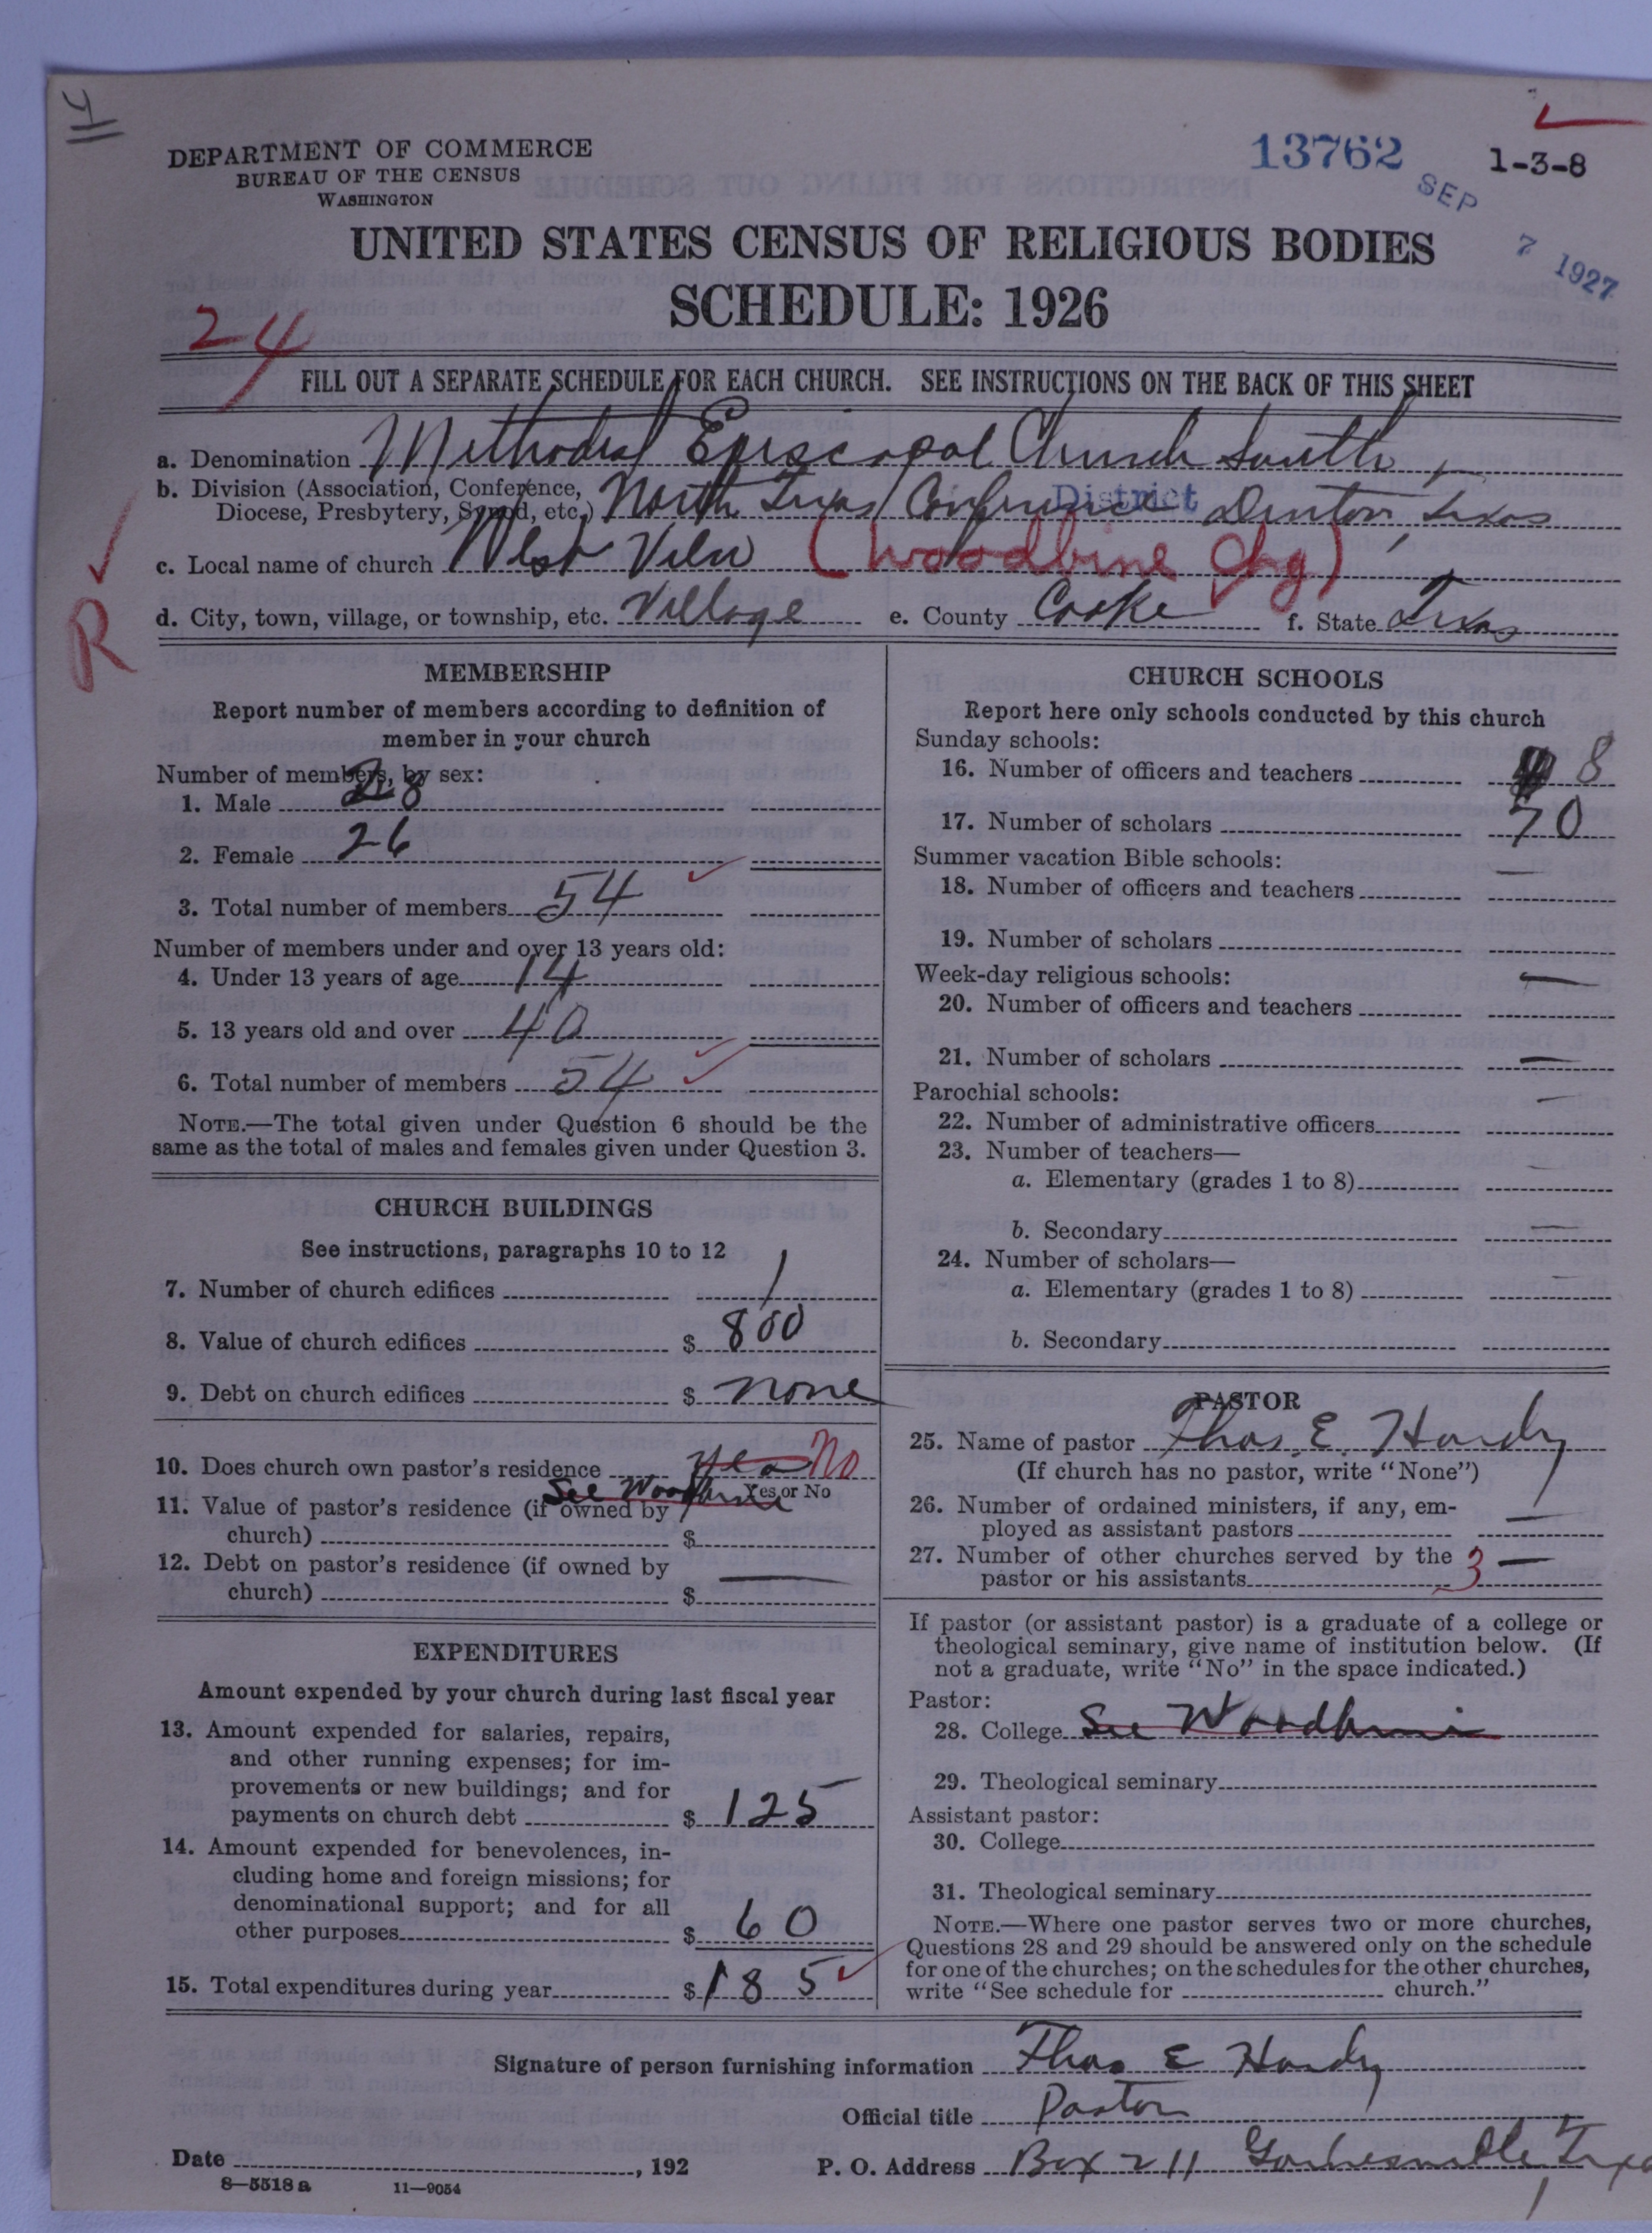 DEPARTMENT OF COMMERCE
BUREAU OF THE CENSUS
WASHINGTON
13762
1-3-8
SEP 7 1927
UNITED STATES CENSUS OF RELIGIOUS BODIES
SCHEDULE: 1926
24
FILL OUT A SEPARATE SCHEDULE FOR EACH CHURCH. SEE INSTRUCTIONS ON THE BACK OF THIS SHEET
a. Denomination Methodist Episcopal Church South
b. Division (Association, Conference, Diocese, Presbytery, Synod, etc.) North Texas Conference District Denton, Texas
c. Local name of church West View (Woodbine Chg)
R
d. City, town, village, or township, etc. Village e. County Cooke f. State Texas
MEMBERSHIP
Report number of members according to definition of
member in your church
Number of members, by sex:
1. Male 28
2. Female 26
3. Total number of members 54
Number of members under and over 13 years old:
4. Under 13 years of age 14
5. 13 years old and over 40
6. Total number of members 54
NOTE.—The total given under Question 6 should be the
same as the total of males and females given under Question 3.
CHURCH BUILDINGS
See instructions, paragraphs 10 to 12
7. Number of church edifices 1
8. Value of church edifices $ 800
9. Debt on church edifices $ none
10. Does church own pastor's residence yes No
Yes or No
See Woodbine
11. Value of pastor's residence (if owned by
church) $
12. Debt on pastor's residence (if owned by
church) $ —
EXPENDITURES
Amount expended by your church during last fiscal year
13. Amount expended for salaries, repairs,
and other running expenses; for im-
provements or new buildings; and for
payments on church debt $ 125
14. Amount expended for benevolences, in-
cluding home and foreign missions; for
denominational support; and for all
other purposes $ 60
15. Total expenditures during year $ 185
CHURCH SCHOOLS
Report here only schools conducted by this church
Sunday schools:
16. Number of officers and teachers 8
17. Number of scholars 70
Summer vacation Bible schools:
18. Number of officers and teachers —
19. Number of scholars
Week-day religious schools:
20. Number of officers and teachers —
21. Number of scholars —
Parochial schools:
22. Number of administrative officers —
23. Number of teachers—
a. Elementary (grades 1 to 8) —
b. Secondary —
24. Number of scholars—
a. Elementary (grades 1 to 8) —
b. Secondary
PASTOR
25. Name of pastor Thos. E. Hardy
(If church has no pastor, write "None")
26. Number of ordained ministers, if any, em-
ployed as assistant pastors —
27. Number of other churches served by the
pastor or his assistants 3 —
If pastor (or assistant pastor) is a graduate of a college or
theological seminary, give name of institution below. (If
not a graduate, write "No" in the space indicated.)
Pastor:
28. College See Woodbine
29. Theological seminary
Assistant pastor:
30. College
31. Theological seminary
NOTE.—Where one pastor serves two or more churches,
Questions 28 and 29 should be answered only on the schedule
for one of the churches; on the schedules for the other churches,
write "See schedule for church."
Signature of person furnishing information Thos E Hardy
Official title Pastor
Date , 192
P. O. Address Box 211 Gainesville Texas
8—5518 a 11—9054